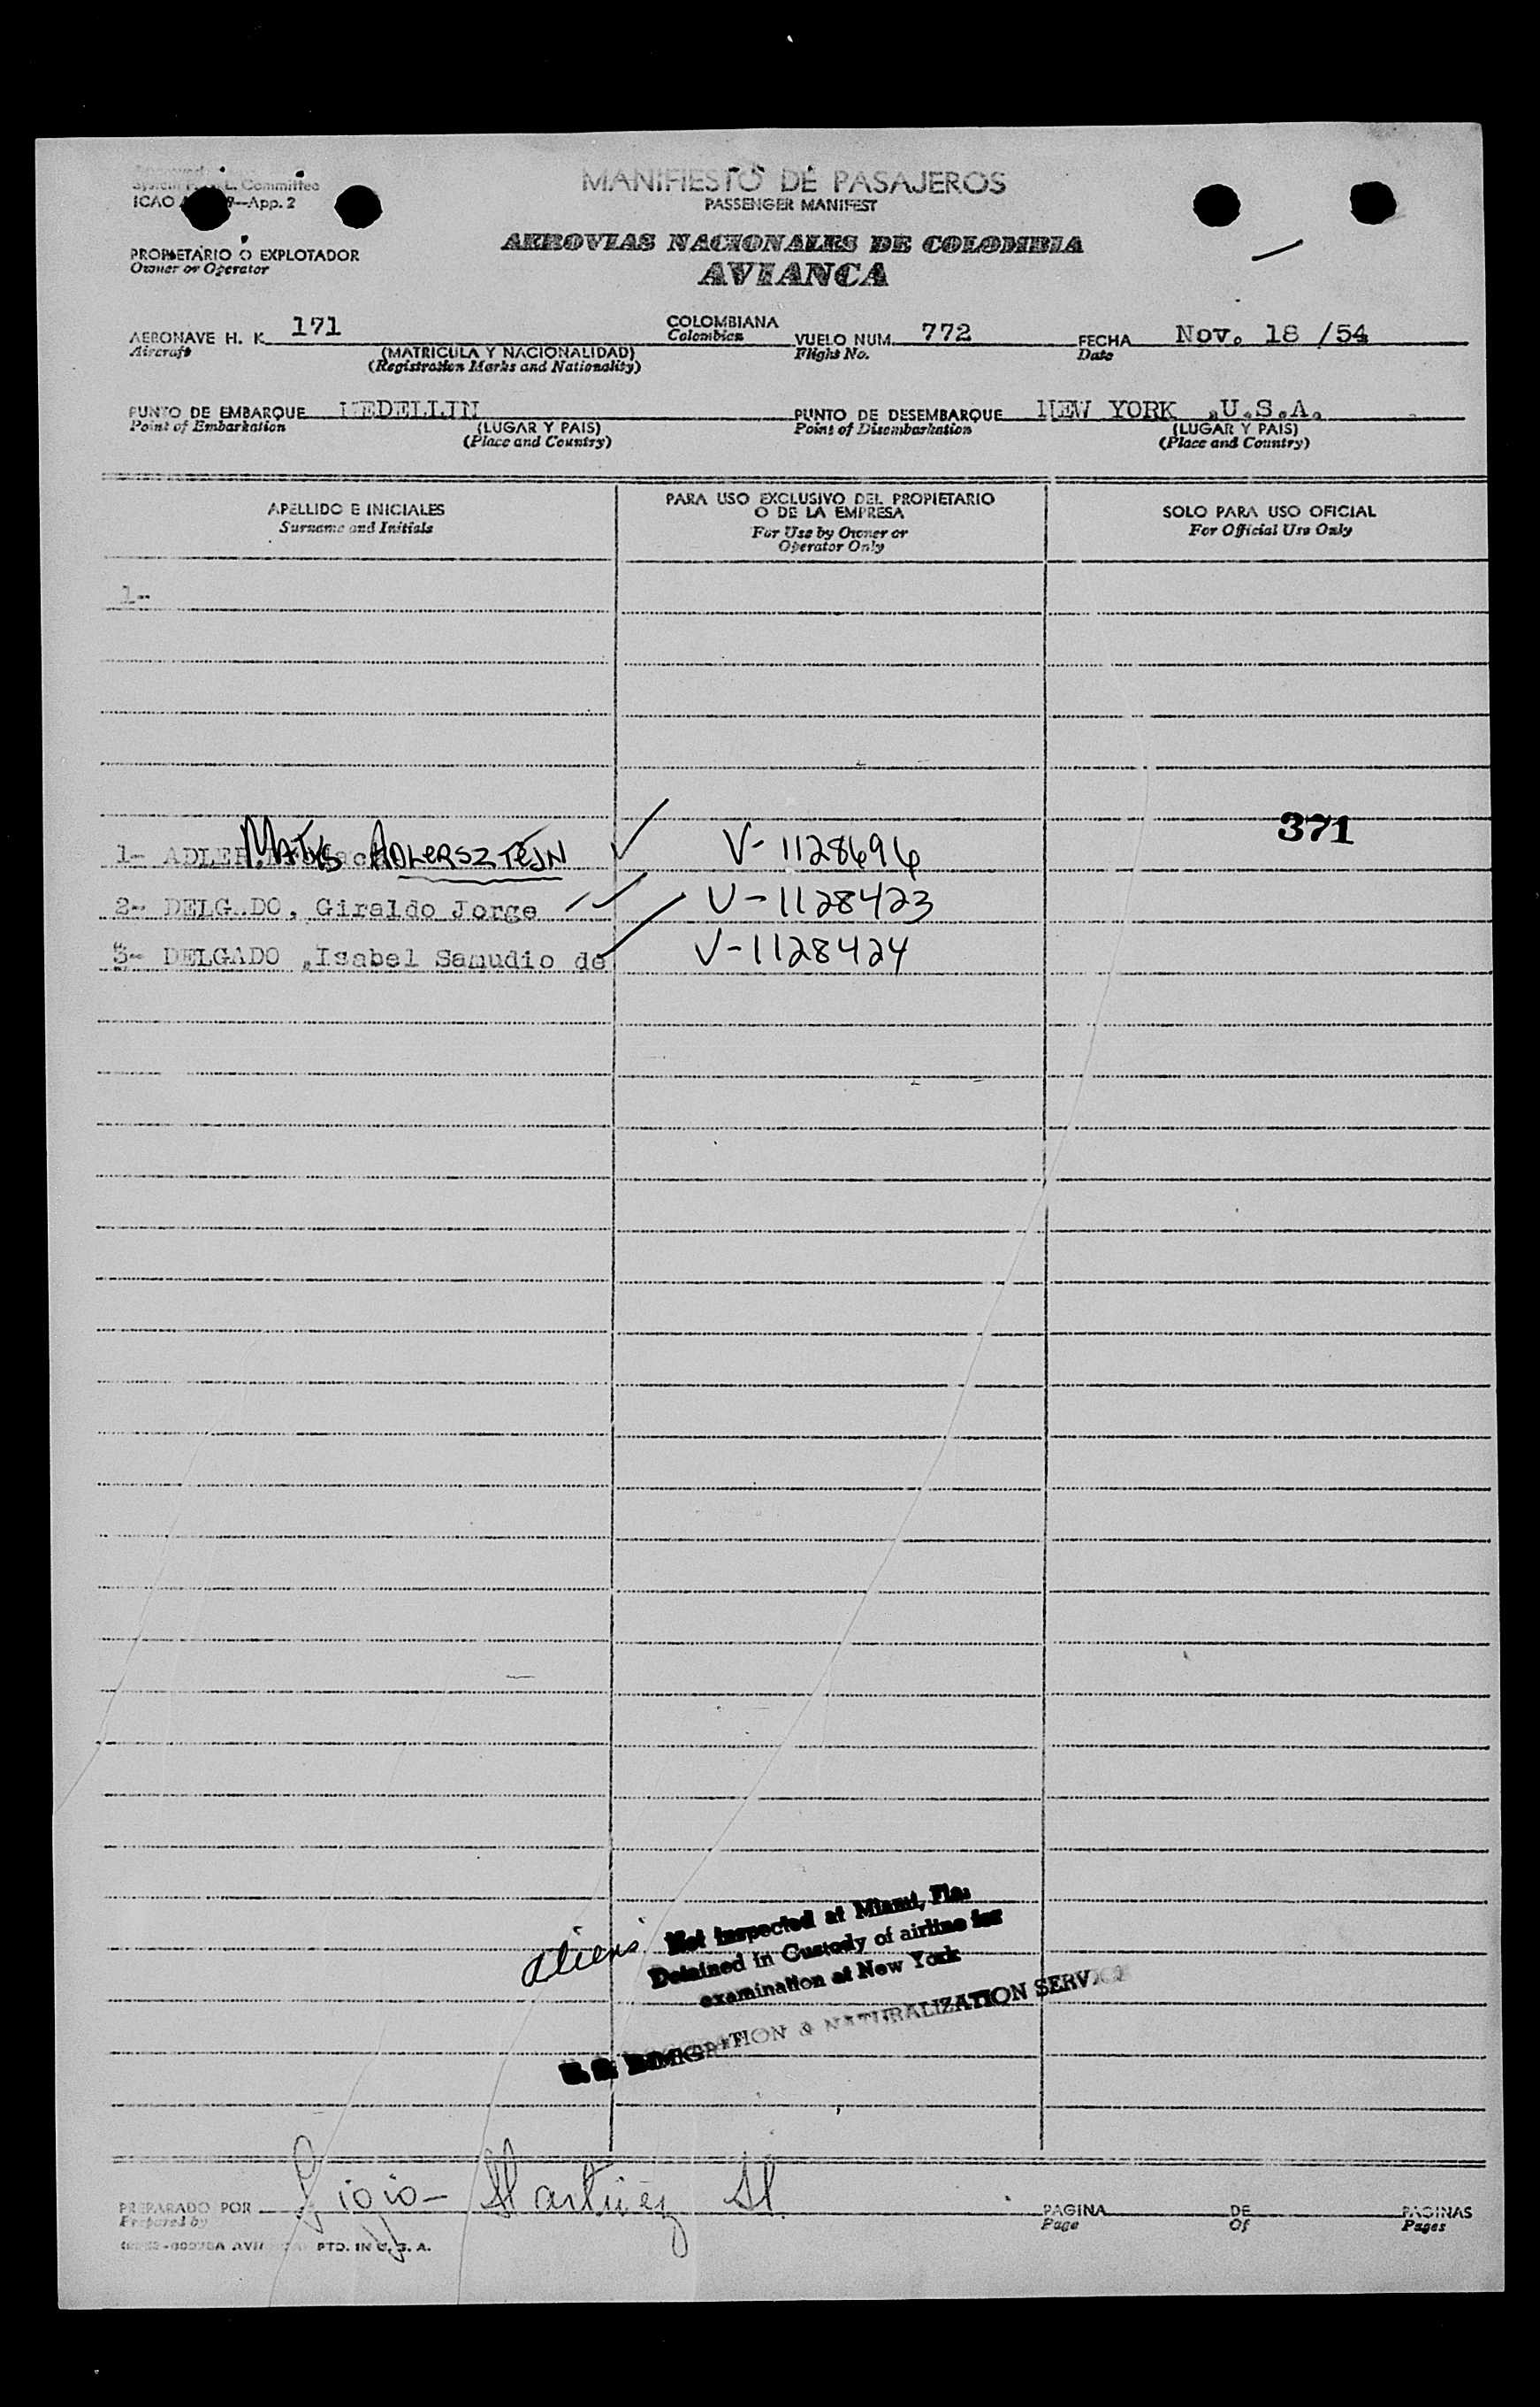 System F.A.L. Committee
ICAO App. 2
MANIFIESTO DE PASAJEROS
PASSENGER MANIFEST
AEROVIAS NACIONALES DE COLOMBIA
AVIANCA
PROPIETARIO O EXPLOTADOR
Owner or Operator
AERONAVE H. K. 171 COLOMBIANA VUELO NUM. 772 FECHA Nov. 18 /54
Aircraft (MATRICULA Y NACIONALIDAD) Colombian Flight No. Date
(Registration Marks and Nationality)
PUNTO DE EMBARQUE MEDELLIN PUNTO DE DESEMBARQUE NEW YORK ,U.S.A.
Point of Embarkation (LUGAR Y PAIS) Point of Disembarkation (LUGAR Y PAIS)
(Place and Country) (Place and Country)
APELLIDO E INICIALES PARA USO EXCLUSIVO DEL PROPIETARIO O DE LA EMPRESA SOLO PARA USO OFICIAL
Surname and Initials For Use by Owner or Operator Only For Official Use Only
1-
371
1- ADLER, MATYS ADLERSZTEJN V-1128696
2- DELGADO, Giraldo Jorge V-1128423
3- DELGADO ,Isabel Samudio de V-1128424
aliens Not inspected at Miami, Fla.
Detained in Custody of airline for
examination at New York
U. S. IMMIGRATION & NATURALIZATION SERVICE
PREPARADO POR Martinez PAGINA DE PAGINAS
Prepared by Page Of Pages
PTD. IN U. S. A.